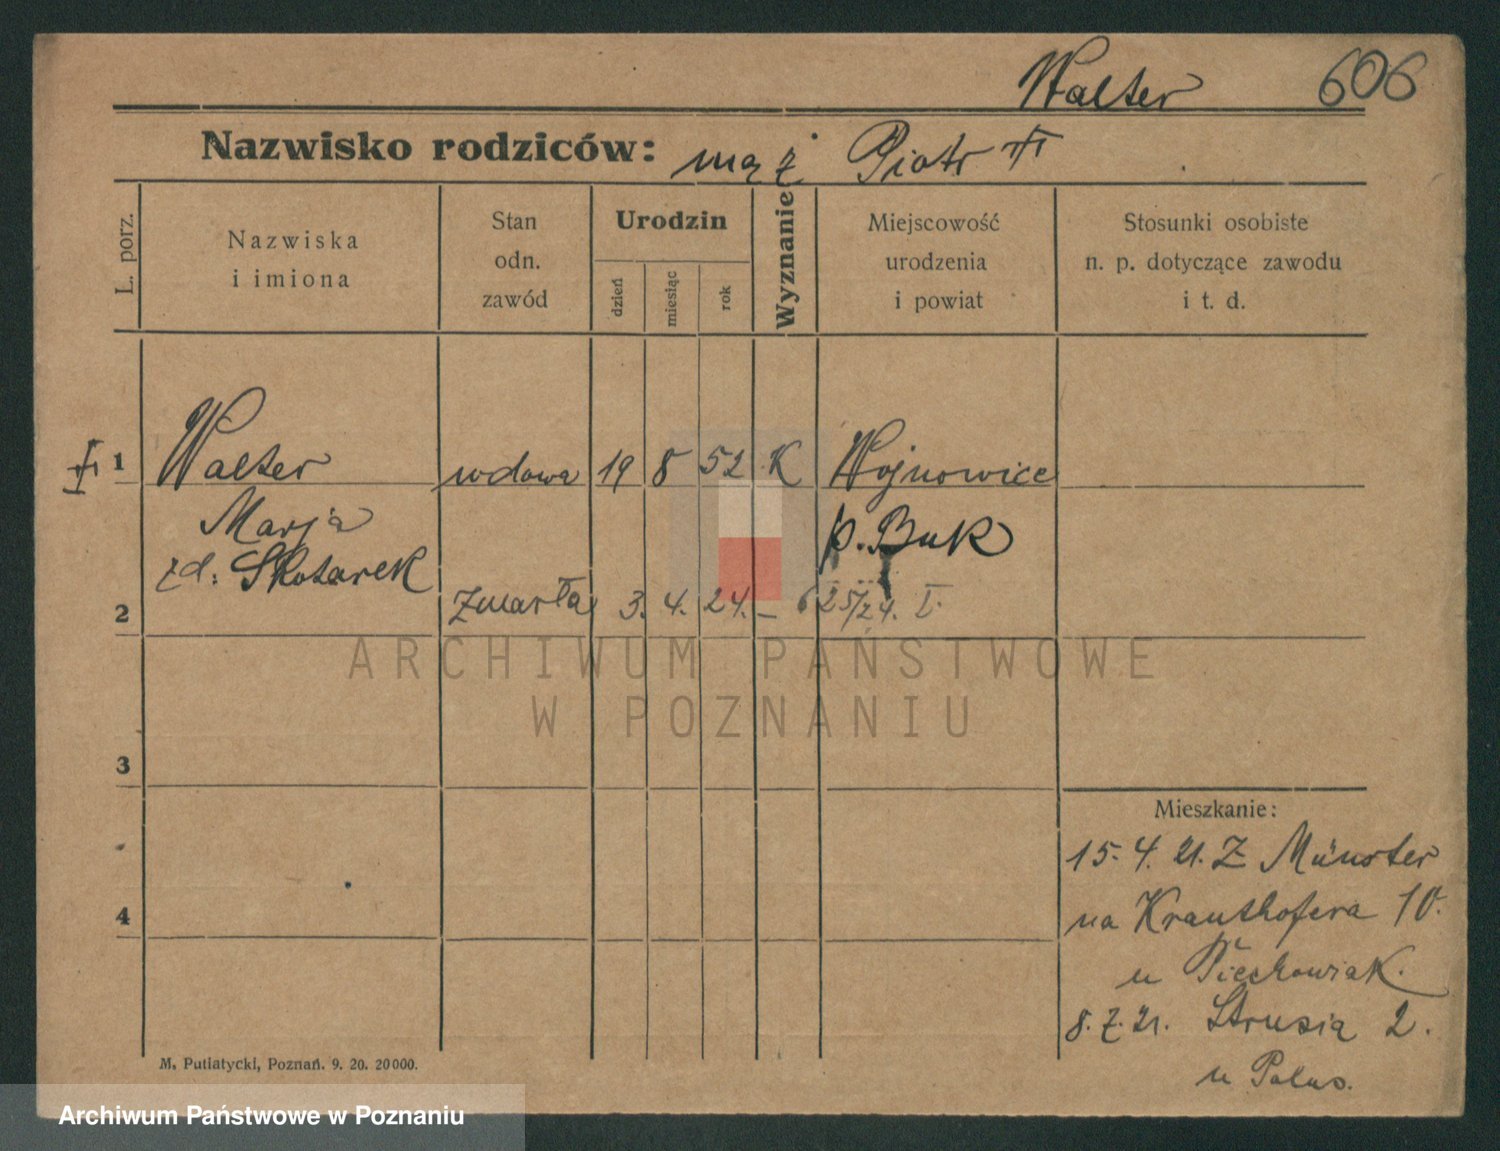 Walter 606
Nazwisko rodziców: mąż Piotr
L. porz.
Nazwiska
i imiona
Stan
odn.
zawód
Urodzin
dzień
miesiąc
rok
Wyznanie
Miejscowość
urodzenia
i powiat
Stosunki osobiste
n. p. dotyczące zawodu
i t. d.
1 Walter wdowa 19 8 52 K Wojnowice
Marja p. Buk
zd: Skotarek
2 Zmarła 3. 4. 24. 625/24. I.
ARCHIWUM PAŃSTWOWE
W POZNANIU
3
Mieszkanie:
15. 4. 21. Z Münster
4 na Krauthofera 10.
u Piechowiak.
8. 7. 21. Strusia 2.
u
M. Putiatycki, Poznań. 9. 20. 20000.
Archiwum Państwowe w Poznaniu